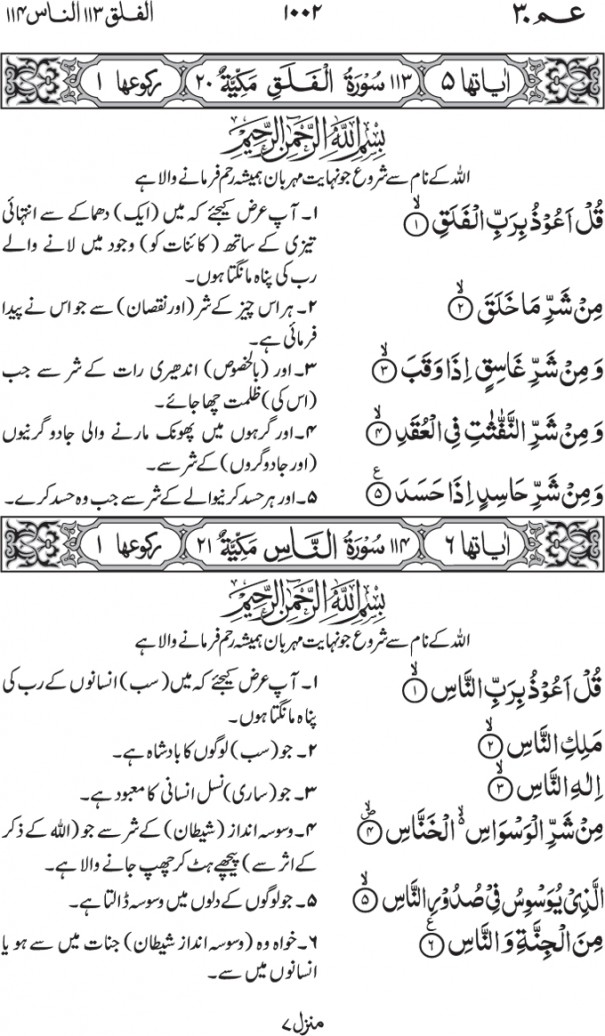 عـم ۳۰ ۱۰۰۲ الفلق ۱۱۳ الناس ۱۱۴
اٰیاتها ۵ ۱۱۳ سُوْرَةُ الْفَلَقِ مَكِّيَّةٌ ۲۰ رکوعها ۱
بِسْمِ اللّٰهِ الرَّحْمٰنِ الرَّحِيْمِ
اللہ کے نام سے شروع جو نہایت مہربان ہمیشہ رحم فرمانے والا ہے
قُلْ اَعُوْذُ بِرَبِّ الْفَلَقِۙ ۱
۱۔ آپ عرض کیجئے کہ میں (ایک) دھماکے سے انتہائی
تیزی کے ساتھ (کائنات کو) وجود میں لانے والے
رب کی پناہ مانگتا ہوں۔
مِنْ شَرِّ مَا خَلَقَۙ ۲
۲۔ ہر اس چیز کے شر (اور نقصان) سے جو اس نے پیدا
فرمائی ہے۔
وَ مِنْ شَرِّ غَاسِقٍ اِذَا وَقَبَۙ ۳
۳۔ اور (بالخصوص) اندھیری رات کے شر سے جب
(اس کی) ظلمت چھا جائے۔
وَ مِنْ شَرِّ النَّفّٰثٰتِ فِی الْعُقَدِۙ ۴
۴۔ اور گرہوں میں پھونک مارنے والی جادوگرنیوں
(اور جادوگروں) کے شر سے۔
وَ مِنْ شَرِّ حَاسِدٍ اِذَا حَسَدَ ۵ ع
۵۔ اور ہر حسد کرنیوالے کے شر سے جب وہ حسد کرے۔
اٰیاتها ۶ ۱۱۴ سُوْرَةُ النَّاسِ مَكِّيَّةٌ ۲۱ رکوعها ۱
بِسْمِ اللّٰهِ الرَّحْمٰنِ الرَّحِيْمِ
اللہ کے نام سے شروع جو نہایت مہربان ہمیشہ رحم فرمانے والا ہے
قُلْ اَعُوْذُ بِرَبِّ النَّاسِۙ ۱
۱۔ آپ عرض کیجئے کہ میں (سب) انسانوں کے رب کی
پناہ مانگتا ہوں۔
مَلِكِ النَّاسِۙ ۲
۲۔ جو (سب) لوگوں کا بادشاہ ہے۔
اِلٰهِ النَّاسِۙ ۳
۳۔ جو (ساری) نسل انسانی کا معبود ہے۔
مِنْ شَرِّ الْوَسْوَاسِ ۙ۬ الْخَنَّاسِ۪ۙ ۴
۴۔ وسوسہ انداز (شیطان) کے شر سے جو (اللہ کے ذکر
کے اثر سے) پیچھے ہٹ کر چھپ جانے والا ہے۔
الَّذِیْ یُوَسْوِسُ فِیْ صُدُوْرِ النَّاسِۙ ۵
۵۔ جو لوگوں کے دلوں میں وسوسہ ڈالتا ہے۔
مِنَ الْجِنَّةِ وَ النَّاسِ ۶ ع
۶۔ خواہ وہ (وسوسہ انداز شیطان) جنات میں سے ہو یا
انسانوں میں سے۔
منزل ۷